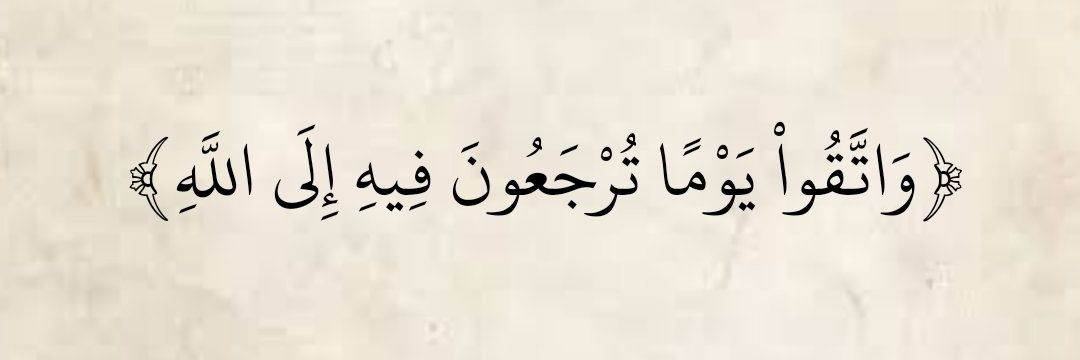 ﴿وَاتَّقُواْ يَوْمًا تُرْجَعُونَ فِيهِ إِلَى اللَّهِ﴾